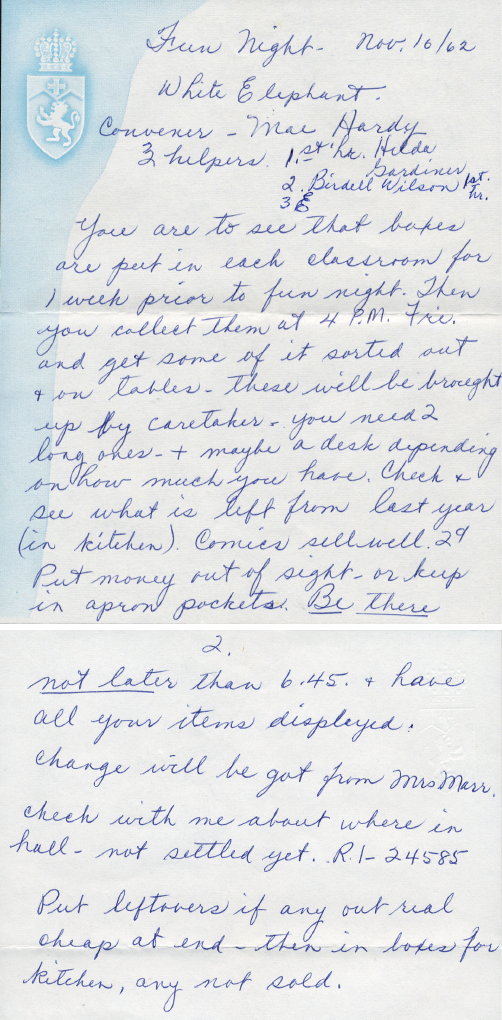 Fun Night - Nov. 10/62
White Elephant.
Convener - Mae Hardy
3 helpers. 1. 1st hr. Hilda
Gardiner
2. Birdell Wilson 1st.
hr.
3
You are to see that boxes
are put in each classroom for
1 week prior to fun night. Then
you collect them at 4 P.M. Fri.
and get some of it sorted out
+ on tables - these will be brought
up by caretaker - you need 2
long ones - + maybe a desk depending
on how much you have. Check +
see what is left from last year
(in kitchen). Comics sell well. 2¢
Put money out of sight - or keep
in apron pockets. Be there
2.
not later than 6.45. + have
all your items displayed.
Change will be got from Mrs Marr.
Check with me about where in
hall - not settled yet. R.1- 24585
Put leftovers if any out real
cheap at end - then in boxes for
kitchen, any not sold.